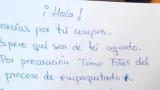 ¡Hola!
Gracias por tú compra.
Espero qué sea de tú agrado.
Por precaución Tomo Fotos del
proceso de empaquetado